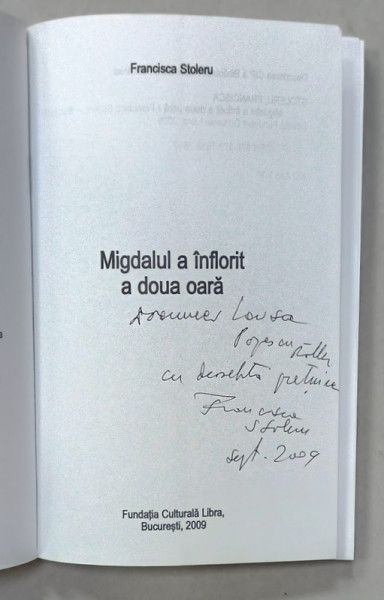 Francisca Stoleru
Migdalul a înflorit
a doua oară
Doamnei Louisa
Popescu
cu deosebita prețuire
Francisca
Stoleru
sept. 2009
Fundația Culturală Libra,
București, 2009